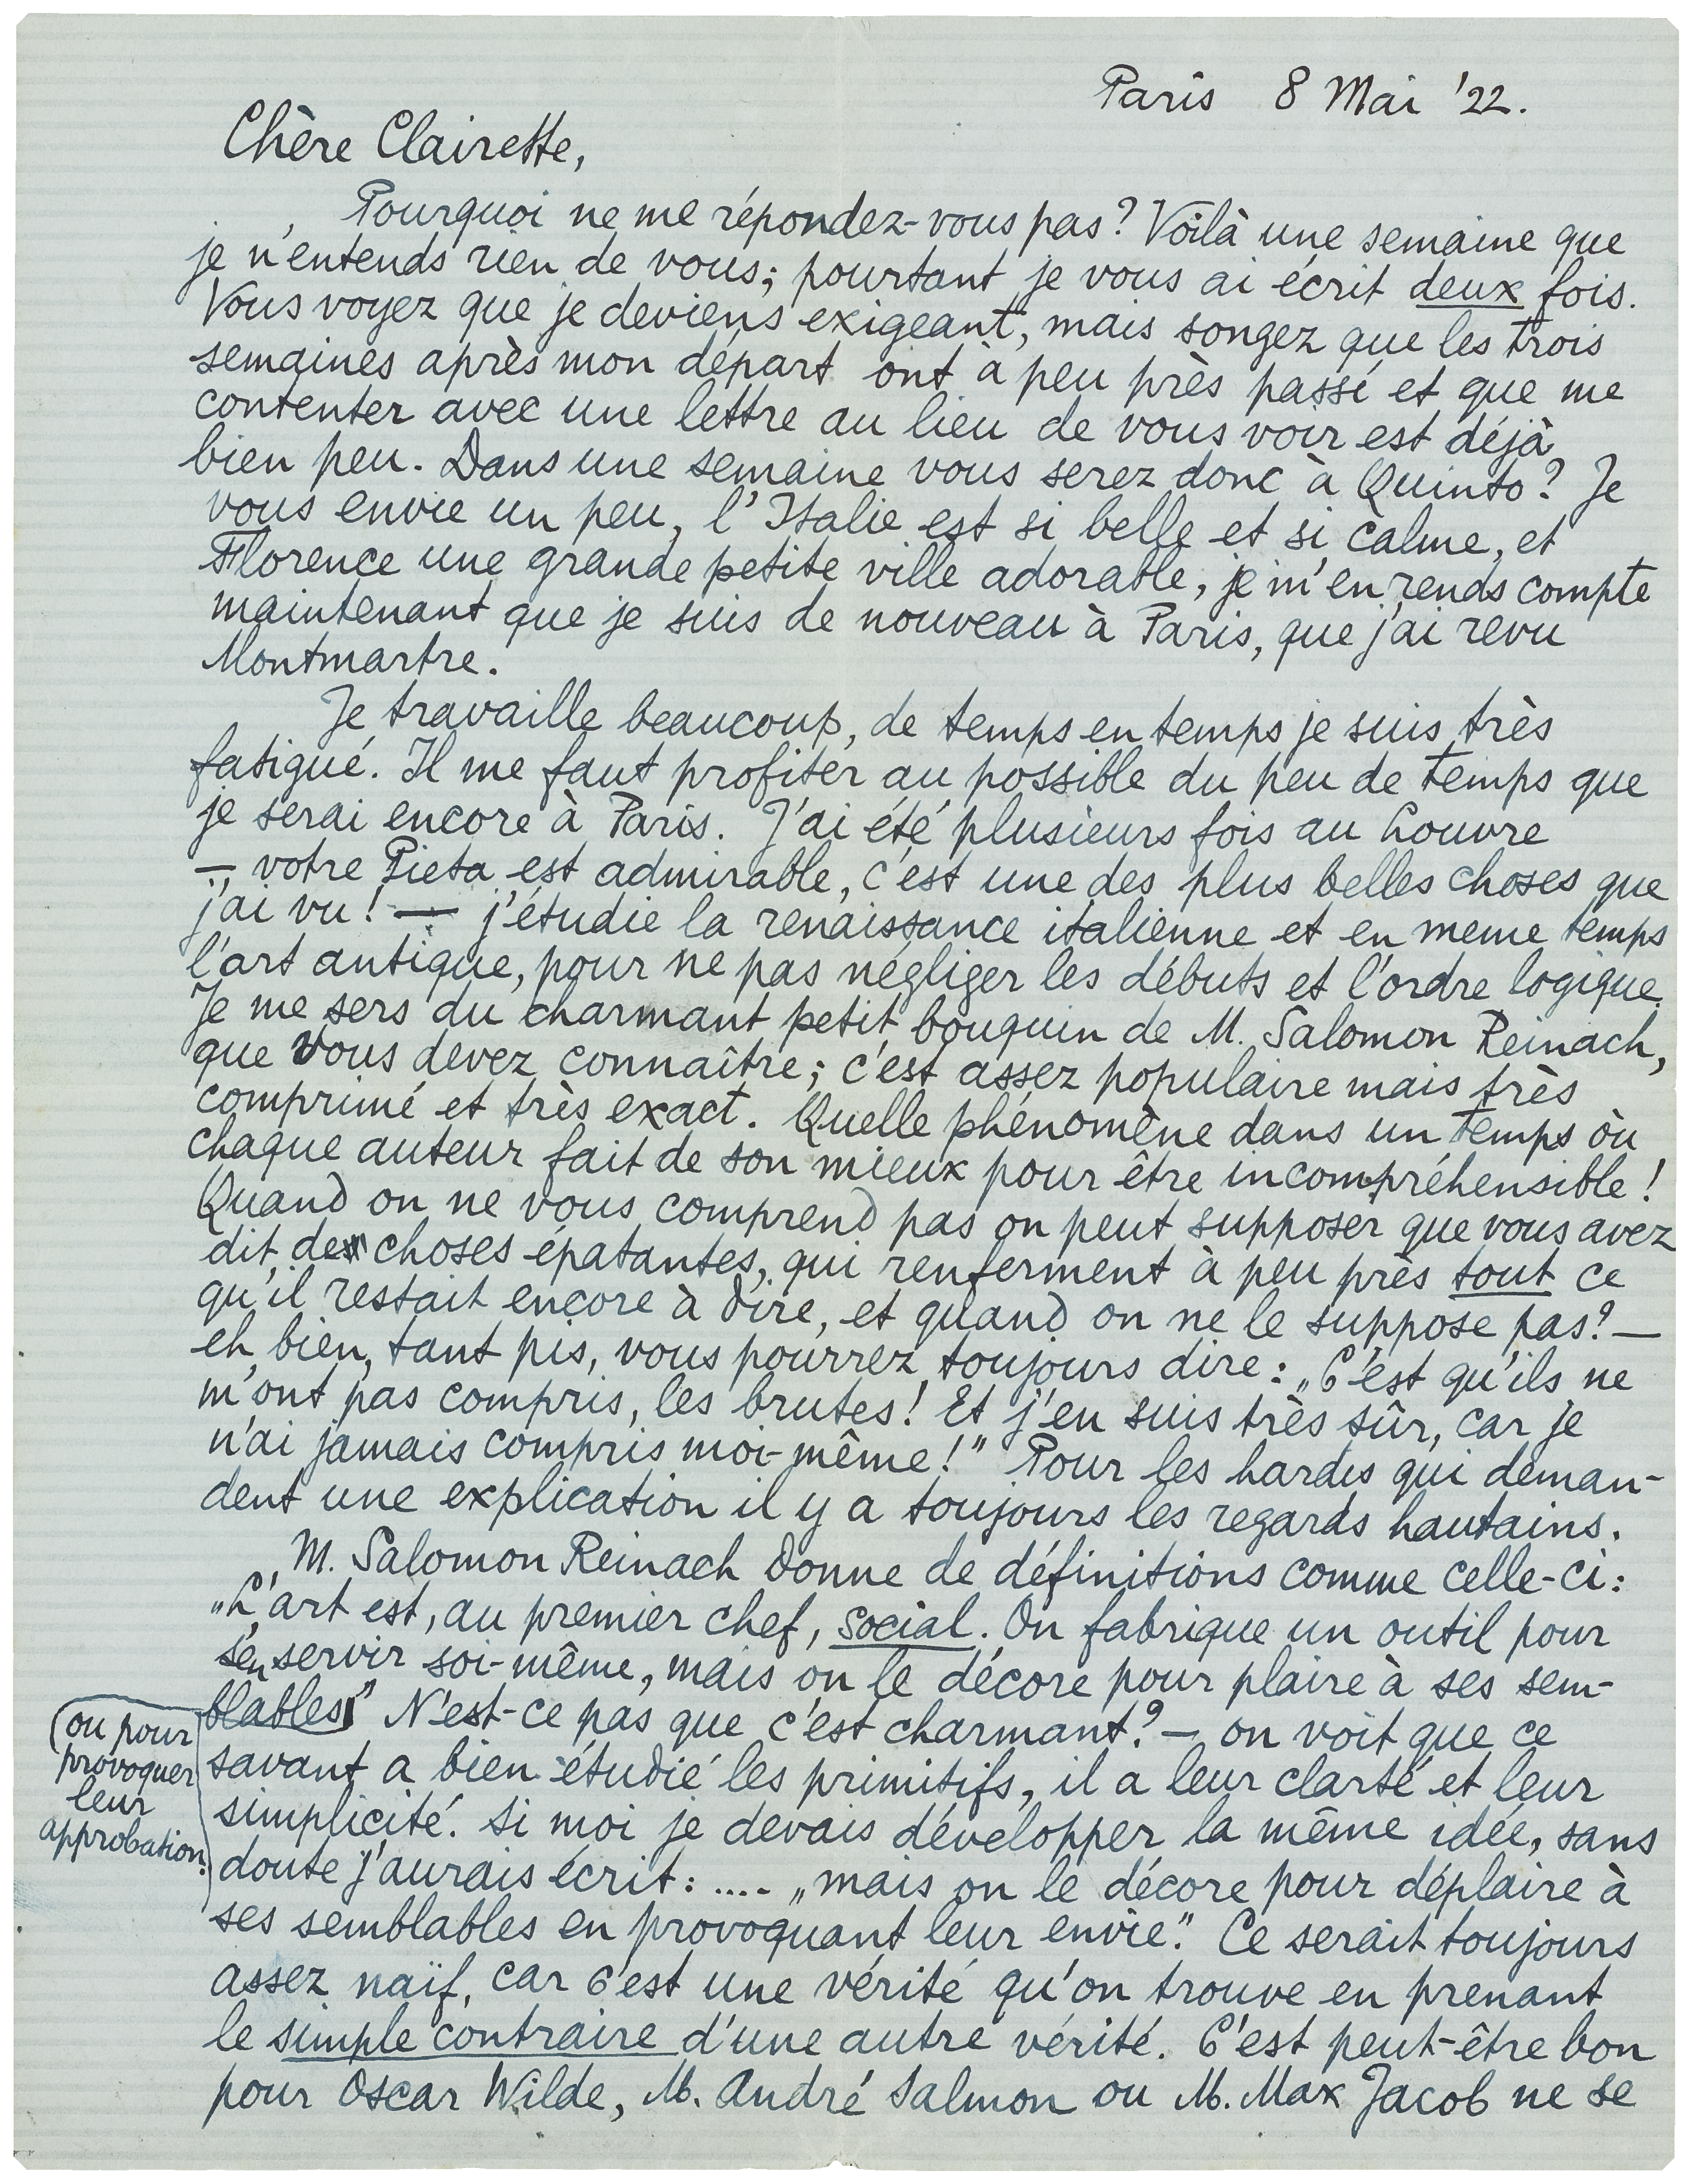 Paris 8 Mai '22.
Chère Clairette,
Pourquoi ne me répondez-vous pas? Voilà une semaine que
je n'entends rien de vous; pourtant je vous ai écrit deux fois.
Vous voyez que je deviens exigeant, mais songez que les trois
semaines après mon départ ont à peu près passé et que me
contenter avec une lettre au lieu de vous voir est déjà
bien peu. Dans une semaine vous serez donc à Quinto? Je
vous envie un peu, l'Italie est si belle et si calme, et
Florence une grande petite ville adorable, je m'en rends compte
maintenant que je suis de nouveau à Paris, que j'ai revu
Montmartre.
Je travaille beaucoup, de temps en temps je suis très
fatigué. Il me faut profiter au possible du peu de temps que
je serai encore à Paris. J'ai été plusieurs fois au Louvre
— votre Pieta est admirable, c'est une des plus belles choses que
j'ai vu! — j'étudie la renaissance italienne et en meme temps
l'art antique, pour ne pas négliger les débuts et l'ordre logique.
Je me sers du charmant petit bouquin de M. Salomon Reinach,
que vous devez connaître; c'est assez populaire mais très
comprimé et très exact. Quelle phénomène dans un temps où
chaque auteur fait de son mieux pour être incompréhensible!
Quand on ne vous comprend pas on peut supposer que vous avez
dit des choses épatantes, qui renferment à peu près tout ce
qu'il restait encore à dire, et quand on ne le suppose pas? —
eh bien, tant pis, vous pourrez toujours dire: „C'est qu'ils ne
m'ont pas compris, les brutes! Et j'en suis très sûr, car je
n'ai jamais compris moi-même!" Pour les hardis qui deman-
dent une explication il y a toujours les regards hautains.
M. Salomon Reinach donne de définitions comme celle-ci:
„L'art est, au premier chef, social. On fabrique un outil pour
s'en servir soi-même, mais on le décore pour plaire à ses sem-
blables" N'est-ce pas que c'est charmant? — on voit que ce
(ou pour
provoquer
leur
approbation.
savant a bien étudié les primitifs, il a leur clarté et leur
simplicité. Si moi je devais développer la même idée, sans
doute j'aurais écrit: .... „mais on le décore pour déplaire à
ses semblables en provoquant leur envie." Ce serait toujours
assez naïf, car c'est une vérité qu'on trouve en prenant
le simple contraire d'une autre vérité. C'est peut-être bon
pour Oscar Wilde, M. André Salmon ou M. Max Jacob ne se